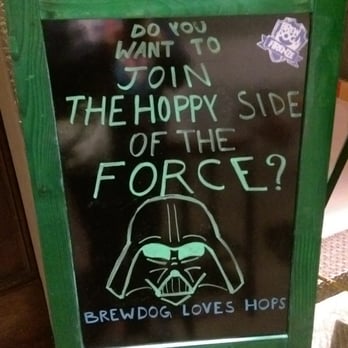 DO YOU
WANT TO
JOIN
THE HOPPY SIDE
OF THE
FORCE?
BREWDOG LOVES HOPS
BREW
DOG
FIRENZE